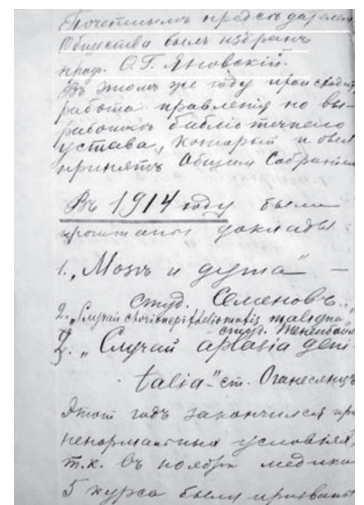 Почетнымъ председателемъ
Общества былъ избранъ
проф. Ѳ.Г. Яновскій.
Въ этомъ же году происходит
работа правленія по вы-
работкѣ библіотечнаго
устава, который и был
принятъ Общимъ Собраніем
Въ 1914 году были
прочитаны доклады:
1. „Мозгъ и душа" —
студ. Семеновъ.
2. „Случай chorionepitheliomatis maligna"
студ. Тененбаум
3. „Случай aplasia geni-
talia" – ст. Оганесянцъ
Этотъ годъ закончился при
ненормальныхъ условіяхъ,
т.к. въ ноябрѣ медики
5 курса были призваны